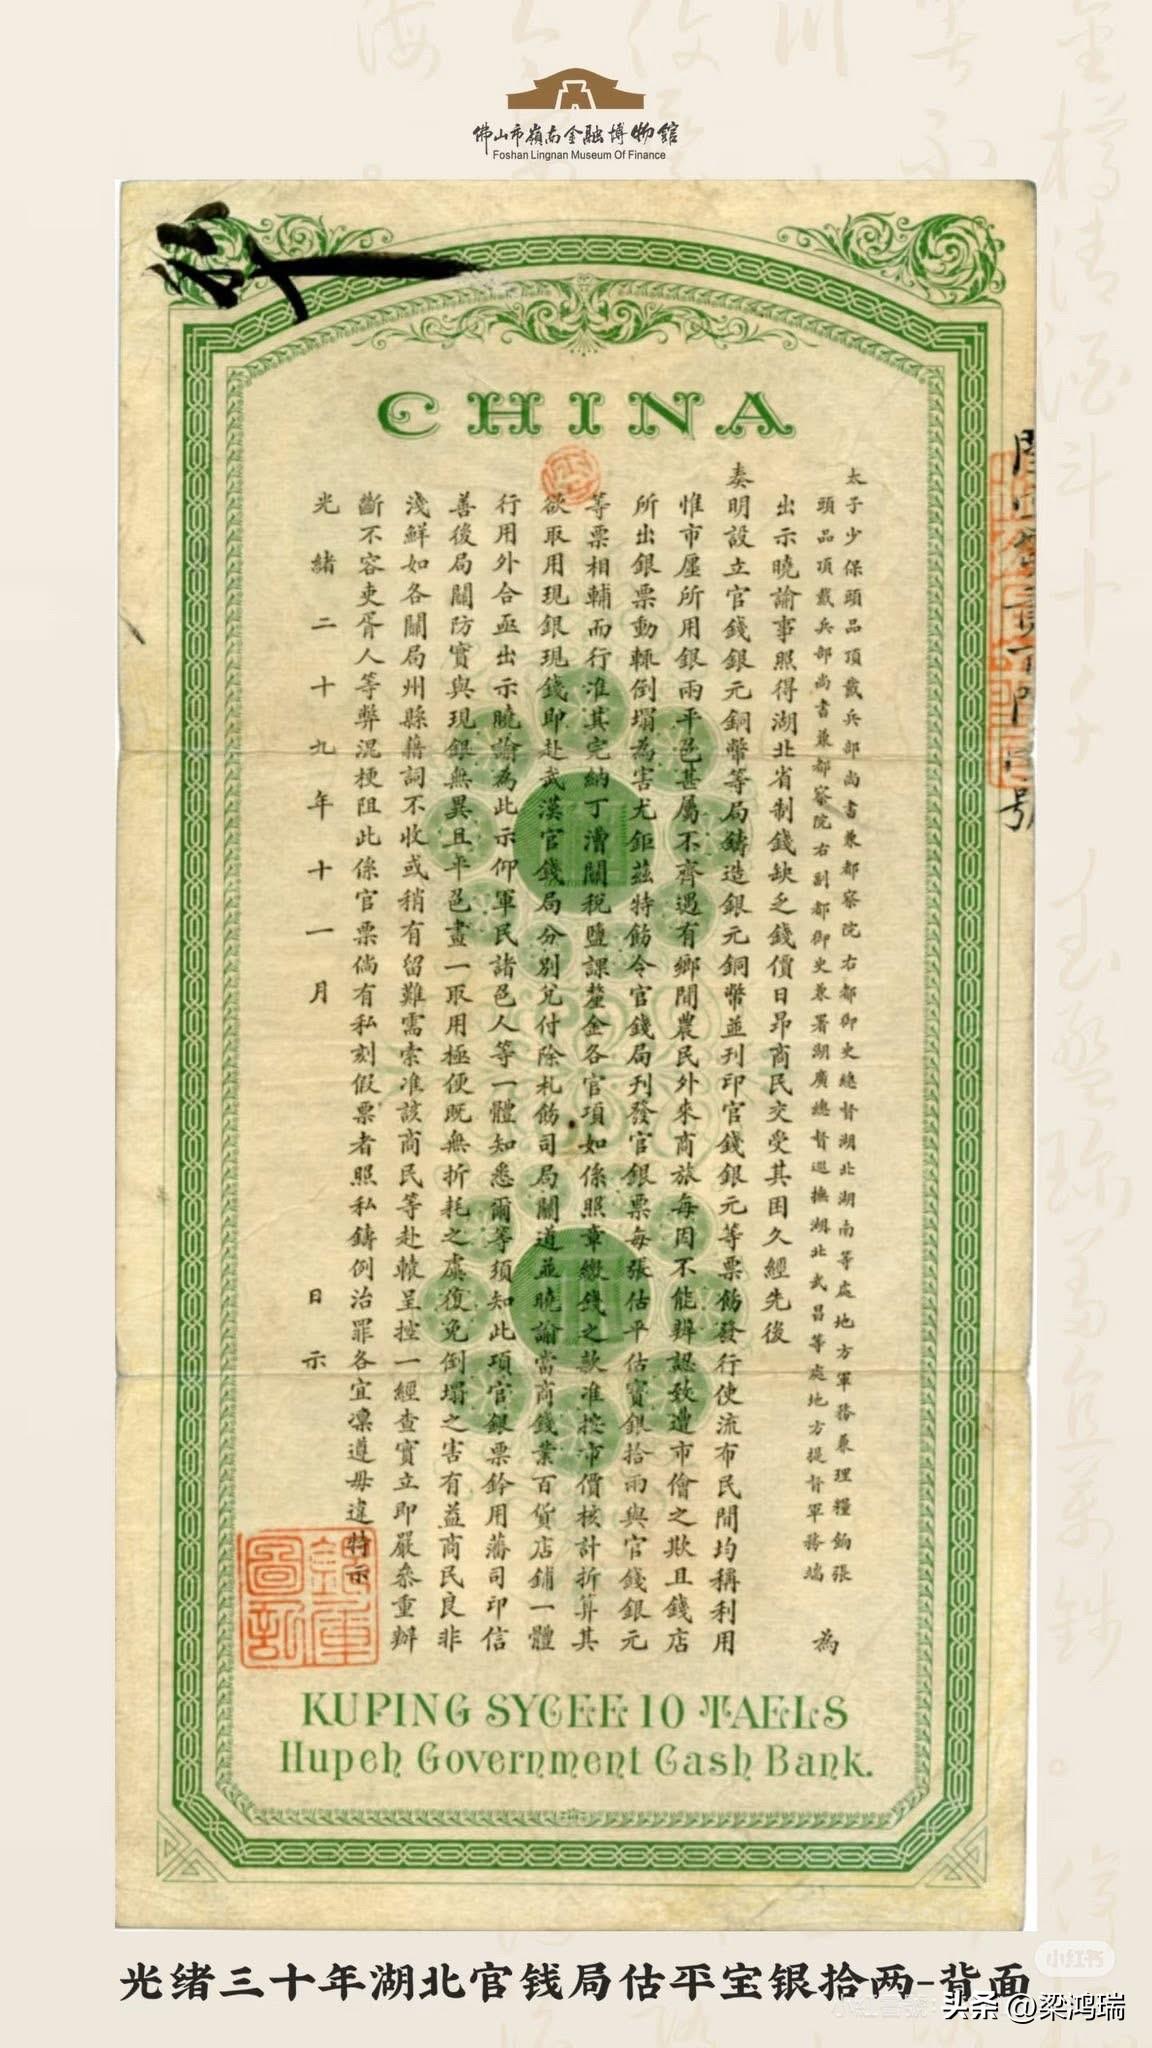 佛山市嶺南金融博物館
Foshan Lingnan Museum Of Finance
CHINA
太子少保頭品頂戴兵部尚書兼都察院右都御史總督湖北湖南等處地方軍務兼理糧餉張
頭品頂戴兵部尚書兼都察院右副都御史兼署湖廣總督巡撫湖北武昌等處地方提督軍務端 為
出示曉諭事照得湖北省制錢缺乏錢價日昂商民交受其困久經先後
奏明設立官錢銀元銅幣等局鑄造銀元銅幣並刊印官錢銀元等票飭發行使流布民間均稱利用
惟市廛所用銀兩平色甚屬不齊遇有鄉間農民外來商旅每因不能辨認致遭市儈之欺且錢店
所出銀票動輒倒塌為害尤鉅茲特飭令官錢局刊發官銀票每張估平估寶銀拾兩與官錢銀元
等票相輔而行准其完納丁漕關稅鹽課釐金各官項如係照章繳錢之款准按市價核計折算其
欲取用現銀現錢即赴武漢官錢局分別兌付除札飭司局關道並曉諭當商錢業百貨店鋪一體
行用外合亟出示曉諭為此示仰軍民諸色人等一體知悉爾等須知此項官銀票鈐用藩司印信
善後局關防實與現銀無異且平色畫一取用極便既無折耗之虞復免倒塌之害有益商民良非
淺鮮如各關局州縣藉詞不收或稍有留難需索准該商民等赴轅呈控一經查實立即嚴參重辦
斷不容吏胥人等弊混梗阻此係官票倘有私刻假票者照私鑄例治罪各宜凜遵毋違特示
光緒二十九年十一月 日示
銀庫圖記
號
KUPING SYCEE 10 TAELS
Hupeh Government Cash Bank.
光绪三十年湖北官钱局估平宝银拾两-背面
小红书
头条 @梁鸿瑞